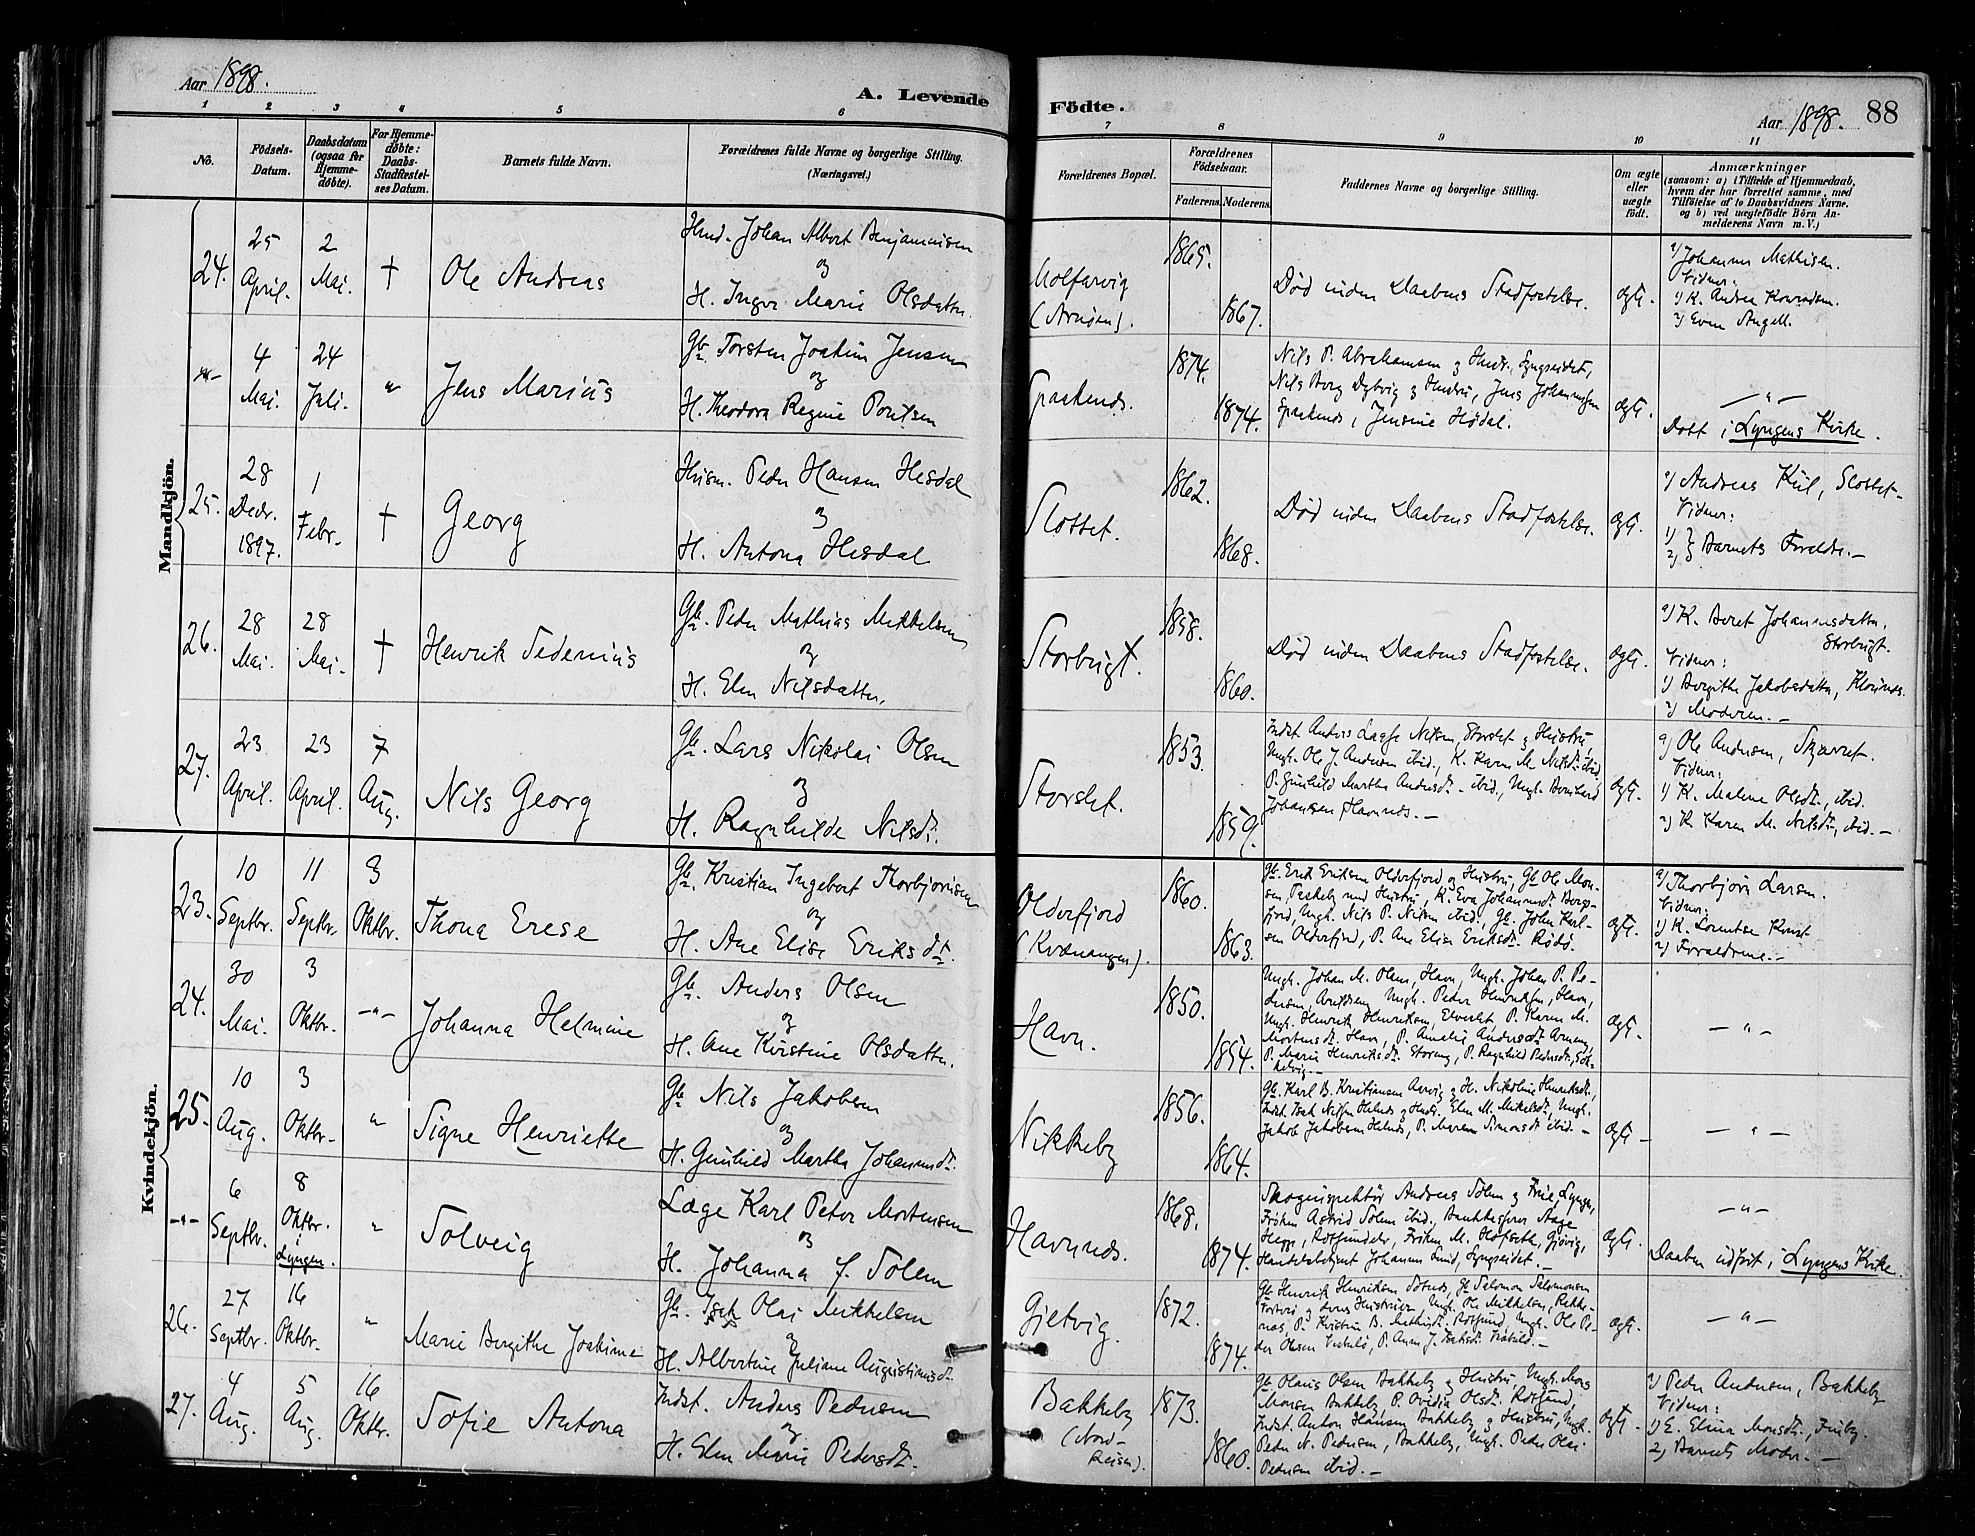 Aar 1898.
A. Levende
Födte.
Aar 1898.
88
1 2 3 4 5 6 7 8 9 10 11
No.
Födsels-
Datum.
Daabsdatum
(ogsaa for
Hjemme-
døbte).
For Hjemme-
døbte:
Daabs-
Stadfæstel-
ses Datum.
Barnets fulde Navn.
Forældrenes fulde Navne og borgerlige Stilling.
(Næringsvei.)
Forældrenes Bopæl.
Forældrenes
Födselsaar.
Faderens. Moderens.
Faddernes Navne og borgerlige Stilling.
Om ægte
eller
uægte
født.
Anmærkninger
(saasom: a) i Tilfælde af Hjemmedaab,
hvem der har forrettet samme, med
Tilföielse af to Daabsvidners Navne.
og b) ved uægtefödte Börn An-
melderens Navn m. V.)
Mandkjön.
24.
25
April.
2
Mai.
†
Ole Andreas
Johan Albert Benjaminsen
og
H. Inger Marie Olsdatter.
(Arnöen).
1865.
1867.
Död inden Daabens Stadfæstelse.
ægte.
a) Johannes Mathisen.
Vidner:
1) K. Andrea
2) Even Angell.
4
Mai.
24
Juli.
"
Jens Marius
Gbr. Torsten Joakim Jensen
og
H. Theodora Regine Poulsen
Spaakenæs.
1874.
1874.
Nils P. Abrahamsen og Hustr., Lyngseidet,
Nils Berg Dybvig og Hustru, Jens Johannesen
Spaakenæs, Jensine Hödal.
ægte.
— " —
Döbt i Lyngens Kirke.
25.
28
Decbr.
1897.
1
Febr.
†
Georg
Husm. Peder Hansen Hesdal
og
H. Antona Hesdal
Slottet.
1862.
1868.
Död inden Daabens Stadfæstelse.
ægte.
a) Andreas Kiil, Slottet
Vidner:
1) }
2) } Barnets Forældre. —
26.
28
Mai.
28
Mai.
†
Henrik Pedenius
Gbr. Peder Mathias Mikkelsen
og
H. Elen Nilsdatter.
Storbugt.
1858.
1860.
Död inden Daabens Stadfæstelse.
ægte.
a) K. Beret Johannesdatter,
Storbugt.
Vidner:
1) Bergithe Jakobsdatter,
2) Moderen. —
27.
23
April.
23
April.
7
Aug.
Nils Georg
Gbr. Lars Nikolai Olsen
og
H. Ragnhilde Nilsdt.
Storslet.
1853.
1859.
Indst. Anders Lasse Nilsen, Storslet og Hustru,
Ungk. Ole J. Andersen ibid., K. Karen M. Nilsdt. ibid.
P. Gunhild Martha Andersdt. ibid., Ungk. Bernhard
Johansen Havnnæs. —
ægte.
a) Ole Andersen,
Vidner:
1) K. Malene Olsdt., ibid.
2) K. Karen M. Nilsdt., ibid. —
Kvindekjön.
23.
10
Septbr.
11
Septbr.
3
Oktbr.
Thona Erese
Gbr. Kristian Ingebort Thorbjörnsen
og
H. Ane Elise Eriksdt.
Olderfjord
(Kvænangen).
1860.
1863.
Gbr. Erik Eriksen Olderfjord og Hustru, Gbr. Ole Mon-
sen, med Hustru, K. Eva Johannesdt. Bergs-
fjord, Ungk. Nils P. Nilsen ibid., Gbr. John Karl-
sen Olderfjord, P. Ane Elise Eriksdt. Rödö.
ægte.
a) Thorbjörn Larsen.
Vidner:
1) K. Lorentse
2) Forældrene. —
24.
30
Mai.
3
Oktbr.
— " —
Johanna Helmine
Gbr. Anders Olsen
og
H. Ane Kristine Olsdatter.
Havn.
1850.
1854.
Ungk. Johan M. Olsen, Havn, Ungk. Johan P. Pe-
dersen, Ungk. Peder Henriksen, Havn,
Ungk. Henrik Henriksen, Elveslet, P. Karen M.
Mortensdt. Havn, P. Amelie Andersdt.
P. Marie Henriksdt. P. Ragnhild Pedersdt.,
ægte.
— " —
25.
10
Aug.
3
Oktbr.
"
Signe Henriette
Gbr. Nils Jakobsen
og
H. Gunhild Martha Johannesdt.
Nikkeby
1856.
1864.
Gbr. Karl B. Kristiansen og H. Nikoline Henriksdt.,
Indst. Isak Nilsen og Hustr. Elen M. Mikkelsdt., Ungk.
Jakob Jakobsen P. Maren Simonsdt. ibid. —
ægte
— " —
— " —
6
Septbr.
8
Oktbr.
i
Lyngen.
"
Solveig
Læge Karl Peter Mortensen
og
H. Johanna f. Solem
Havnnæs.
1868.
1874.
Skoginspektör Andreas Solem og Frue Lyngen,
Fröken Astrid Solem ibid., Aage
Hegge, Rotsundelv, Fröken M. Hofseth, Gjövig,
Handelsbetjent Johannes Lund, Lyngseidet. —
ægte.
— " —
Daaben udfört i Lyngens Kirke.
26.
27
Septbr.
16
Oktbr.
"
Marie Bergithe Joakime
Gbr. Isak Olai Mikkelsen
og
H. Albertine Juliane Augustinusdt.
Gjetvig.
1872.
1874.
Gbr. Henrik Henriksen Gbr. Salomon Salomonsen
og deres Hustruer, Ungk. Ole Mikkelsen,
P. Kristine B. Mathisdt. Rotsund, Ungk. Ole Pe-
der Olsen P. Anne J. Isaksdt. —
ægte.
— " —
27.
4
Aug.
5
Aug.
16
Oktbr.
Sofie Antona
Indst. Anders Pedersen
og
H. Elen Marie Pedersdt.
Bakkeby
(Nord-
Reisen).
1873.
1860.
Gbr. Olaus Olsen Bakkeby og Hustru, Ungk. Mons
Monsen Bakkeby, P. Ovidia Olsdt., Rotsund,
Indst. Anton Hansen Bakkeby og Hustru, Ungk.
Peder N. Pedersen, Bakkeby, Ungk. Peder Olai
Pedersen ibid. —
ægte.
a) Peder Andersen, Bakkeby
Vidner:
1) E. Elina Monsdt.,
2) Barnets Moder. —